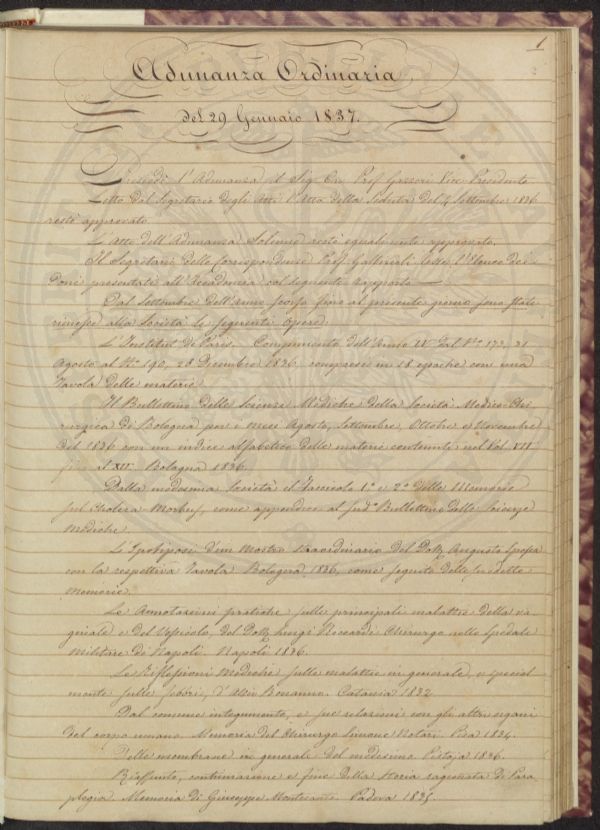 1
Adunanza Ordinaria
del 29 Gennaio 1837.
Presiede l'Adunanza il Sig. Cav. Prof. Gazzeri Vice-Presidente
Letto dal Segretario degli Atti l'Atto della Seduta del 4 Settembre 1836
restò approvato.
L'Atto dell'Adunanza Solenne restò egualmente approvato.
Il Segretario delle Corrispondenze Prof. lesse l'Elenco dei
Doni presentati all'Accademia col seguente rapporto
Dal Settembre dell'anno scorso fino al presente giorno sono state
rimesse alla Società le seguenti opere:
L'Institut de Paris. Compimento dell'Anno IV dal N.º 173, 31
Agosto al N.º 190, 28 Decembre 1836, comprese in 18 epoche con una
Tavola delle materie.
Il Bullettino delle Scienze Mediche della Società Medico-Chi-
rurgica di Bologna per i mesi Agosto, Settembre, Ottobre e Novembre
del 1836 con un indice alfabetico delle materie contenute nel Vol. VII
fino al XII. Bologna 1836.
Dalla medesima Società il Fascicolo 1.º e 2.º delle Memorie
sul Cholera Morbus, come appendice al sud.º Bullettino delle Scienze
Mediche.
d'un Mostro straordinario del Dott. Augusto
con la respettiva Tavola Bologna 1836, come seguito delle suddette
memorie.
Le Annotazioni pratiche sulle principali malattie della va-
ginale e del testicolo, del Dott. Luigi Chirurgo nello Spedale
militare di Napoli. Napoli 1836.
Le Riflessioni Mediche sulle malattie in generale, e special-
mente sulle febbri, d'Alfio Bonanno. Catania 1832
Dal comune integumento, e sue relazioni con gli altri organi
del corpo umano. Memoria del Chirurgo Simone Pisa 1834.
Delle membrane in generale del medesimo Pistoja 1836.
Riassunto, continuazione e fine della storia ragionata di Para-
plegia. Memoria di Giuseppe Montesanto. Padova 1835.